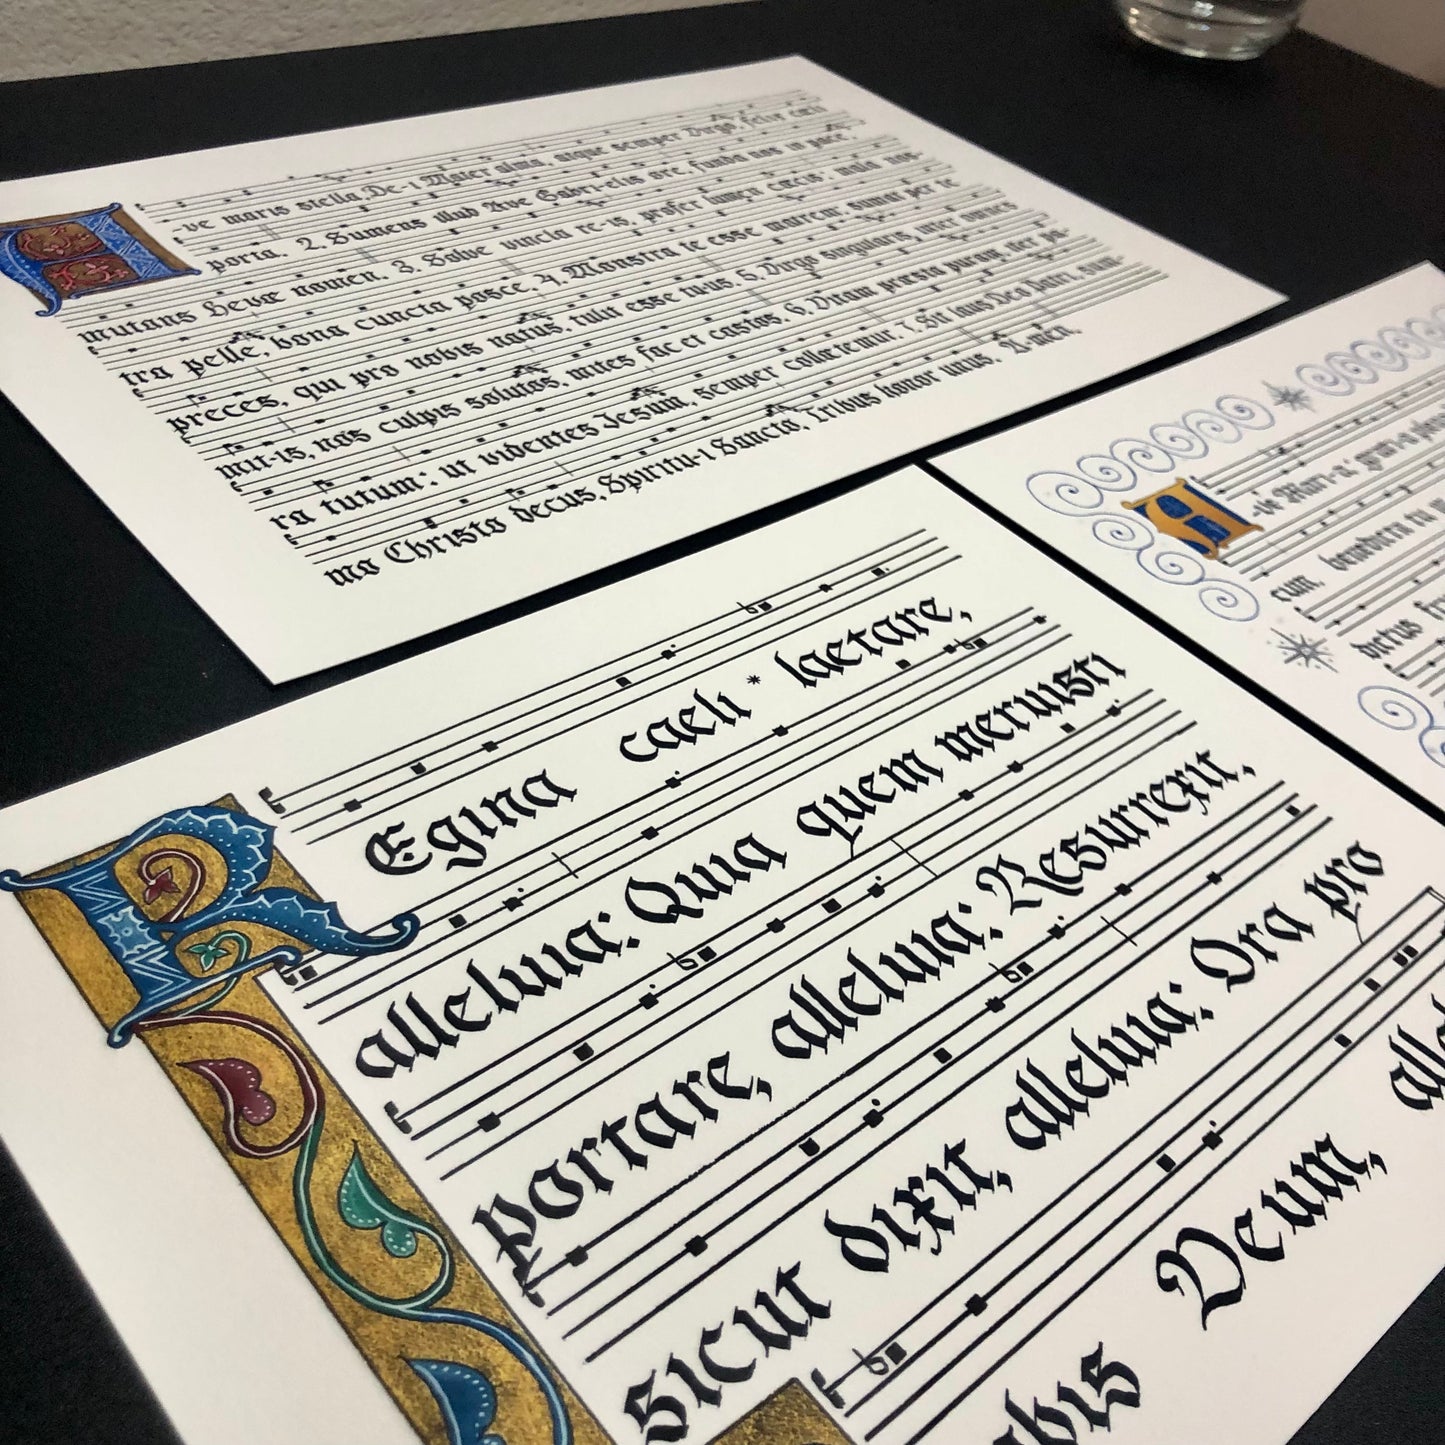 -ve maris stella, De-i Mater alma, atque semper Virgo, felix cœli
porta. 2. Sumens illud Ave Gabri-elis ore, funda nos in pace,
mutans Hevæ nomen. 3. Solve vincla re-is, profer lumen cæcis, mala nos-
tra pelle, bona cuncta posce. 4. Monstra te esse matrem, sumat per te
preces, qui pro nobis natus, tulit esse tu-us. 5. Virgo singularis, inter omnes
mit-is, nos culpis solutos, mites fac et castos. 6. Vitam præsta puram, iter pa-
ra tutum: ut videntes Jesum, semper collætemur. 7. Sit laus Deo Patri, sum-
mo Christo decus, Spiritu-i Sancto, Tribus honor unus. A-men.
A
-ve Mari-a, grati-a
cum, benedicta tu
dictus
R
Egina caeli * laetare,
alleluia: Quia quem meruisti
portare, alleluia: Resurrexit,
sicut dixit, alleluia: Ora pro
Deum,